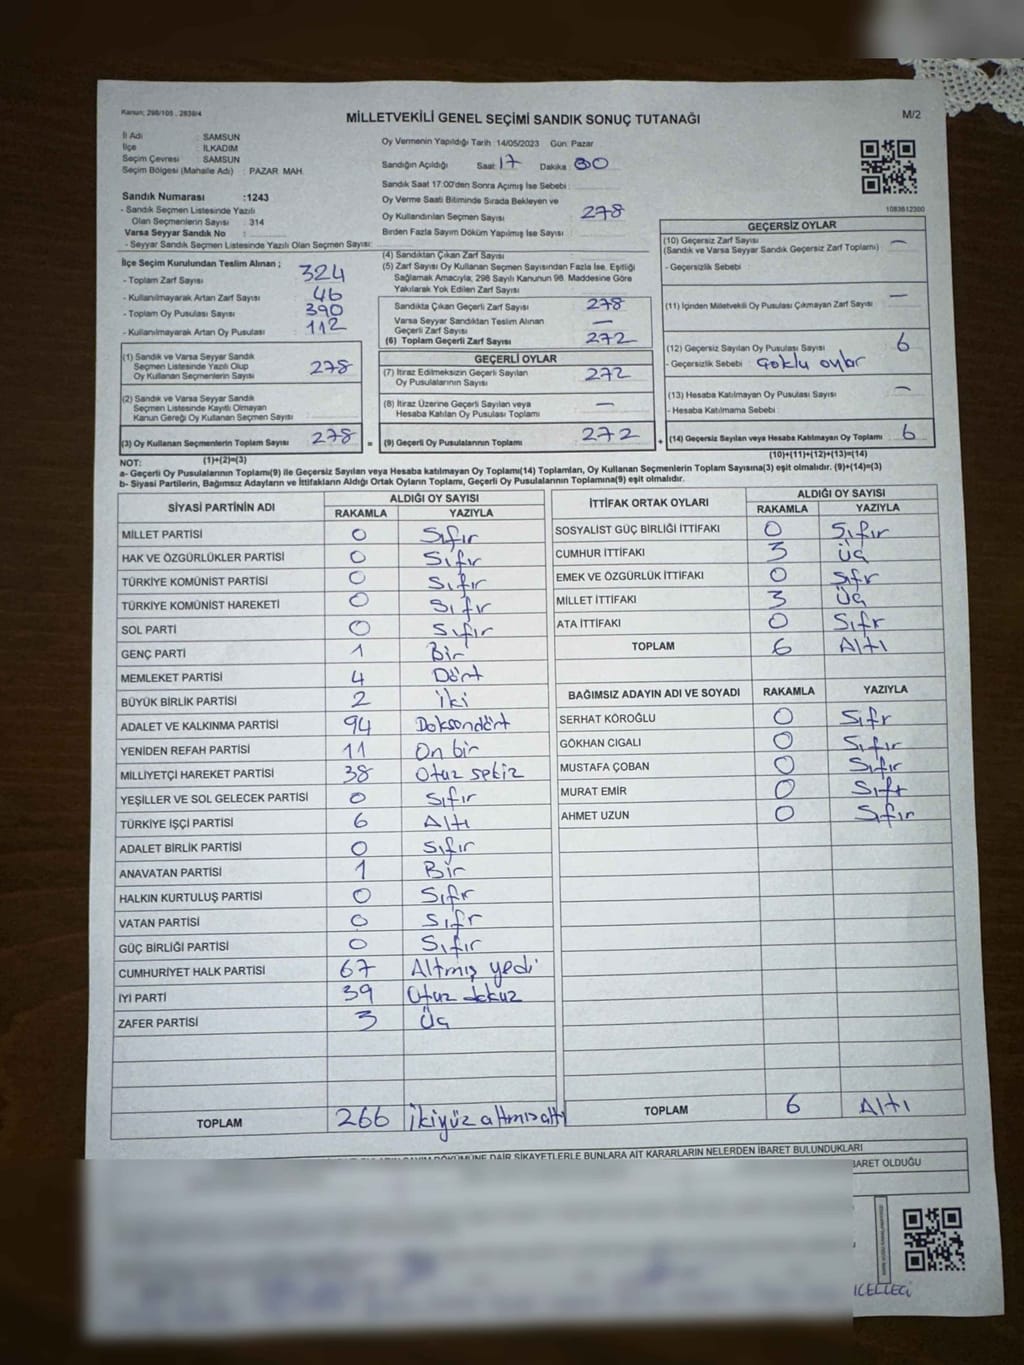 Kanun: 298/105 , 2839/4
MİLLETVEKİLİ GENEL SEÇİMİ SANDIK SONUÇ TUTANAĞI
M/2
İl Adı : SAMSUN
İlçe : İLKADIM
Seçim Çevresi : SAMSUN
Seçim Bölgesi (Mahalle Adı) : PAZAR MAH.
Sandık Numarası :1243
- Sandık Seçmen Listesinde Yazılı
Olan Seçmenlerin Sayısı : 314
Varsa Seyyar Sandık No :
- Seyyar Sandık Seçmen Listesinde Yazılı Olan Seçmen Sayısı:
Oy Vermenin Yapıldığı Tarih :14/05/2023 Gün: Pazar
Sandığın Açıldığı Saat: 17 Dakika: 00
Sandık Saat 17:00'den Sonra Açılmış İse Sebebi :
Oy Verme Saati Bitiminde Sırada Bekleyen ve
Oy Kullandırılan Seçmen Sayısı 278
Birden Fazla Sayım Döküm Yapılmış İse Sayısı :
1083612300
İlçe Seçim Kurulundan Teslim Alınan ;
- Toplam Zarf Sayısı : 324
- Kullanılmayarak Artan Zarf Sayısı : 46
- Toplam Oy Pusulası Sayısı : 390
- Kullanılmayarak Artan Oy Pusulası : 112
(1) Sandık ve Varsa Seyyar Sandık
Seçmen Listesinde Yazılı Olup
Oy Kullanan Seçmenlerin Sayısı : 278
(2) Sandık ve Varsa Seyyar Sandık
Seçmen Listesinde Kayıtlı Olmayan
Kanun Gereği Oy Kullanan Seçmen Sayısı :
(3) Oy Kullanan Seçmenlerin Toplam Sayısı : 278
(4) Sandıktan Çıkan Zarf Sayısı
(5) Zarf Sayısı Oy Kullanan Seçmen Sayısından Fazla İse, Eşitliği
Sağlamak Amacıyla; 298 Sayılı Kanunun 98. Maddesine Göre
Yakılarak Yok Edilen Zarf Sayısı :
Sandıkta Çıkan Geçerli Zarf Sayısı : 278
Varsa Seyyar Sandıktan Teslim Alınan
Geçerli Zarf Sayısı : —
(6) Toplam Geçerli Zarf Sayısı : 272
GEÇERLİ OYLAR
(7) İtiraz Edilmeksizin Geçerli Sayılan
Oy Pusulalarının Sayısı : 272
(8) İtiraz Üzerine Geçerli Sayılan veya
Hesaba Katılan Oy Pusulası Toplamı : —
= (9) Geçerli Oy Pusulalarının Toplamı : 272
GEÇERSİZ OYLAR
(10) Geçersiz Zarf Sayısı : —
(Sandık ve Varsa Seyyar Sandık Geçersiz Zarf Toplamı)
- Geçersizlik Sebebi :
(11) İçinden Milletvekili Oy Pusulası Çıkmayan Zarf Sayısı : —
(12) Geçersiz Sayılan Oy Pusulası Sayısı : 6
- Geçersizlik Sebebi : çoklu oylar
(13) Hesaba Katılmayan Oy Pusulası Sayısı : —
- Hesaba Katılmama Sebebi :
+ (14) Geçersiz Sayılan veya Hesaba Katılmayan Oy Toplamı : 6
NOT: (1)+(2)=(3)
(10)+(11)+(12)+(13)=(14)
a- Geçerli Oy Pusulalarının Toplamı(9) ile Geçersiz Sayılan veya Hesaba katılmayan Oy Toplamı(14) Toplamları, Oy Kullanan Seçmenlerin Toplam Sayısına(3) eşit olmalıdır. (9)+(14)=(3)
b- Siyasi Partilerin, Bağımsız Adayların ve İttifakların Aldığı Ortak Oyların Toplamı, Geçerli Oy Pusulalarının Toplamına(9) eşit olmalıdır.
SİYASİ PARTİNİN ADI ALDIĞI OY SAYISI
RAKAMLA YAZIYLA
MİLLET PARTİSİ 0 Sıfır
HAK VE ÖZGÜRLÜKLER PARTİSİ 0 Sıfır
TÜRKİYE KOMÜNİST PARTİSİ 0 Sıfır
TÜRKİYE KOMÜNİST HAREKETİ 0 Sıfır
SOL PARTİ 0 Sıfır
GENÇ PARTİ 1 Bir
MEMLEKET PARTİSİ 4 Dört
BÜYÜK BİRLİK PARTİSİ 2 iki
ADALET VE KALKINMA PARTİSİ 94 Doksandört
YENİDEN REFAH PARTİSİ 11 On bir
MİLLİYETÇİ HAREKET PARTİSİ 38 Otuz sekiz
YEŞİLLER VE SOL GELECEK PARTİSİ 0 Sıfır
TÜRKİYE İŞÇİ PARTİSİ 6 Altı
ADALET BİRLİK PARTİSİ 0 Sıfır
ANAVATAN PARTİSİ 1 Bir
HALKIN KURTULUŞ PARTİSİ 0 Sıfır
VATAN PARTİSİ 0 Sıfır
GÜÇ BİRLİĞİ PARTİSİ 0 Sıfır
CUMHURİYET HALK PARTİSİ 67 Altmış yedi
İYİ PARTİ 39 Otuz dokuz
ZAFER PARTİSİ 3 Üç
TOPLAM 266 İkiyüz altmışaltı
İTTİFAK ORTAK OYLARI ALDIĞI OY SAYISI
RAKAMLA YAZIYLA
SOSYALİST GÜÇ BİRLİĞİ İTTİFAKI 0 Sıfır
CUMHUR İTTİFAKI 3 Üç
EMEK VE ÖZGÜRLÜK İTTİFAKI 0 Sıfır
MİLLET İTTİFAKI 3 Üç
ATA İTTİFAKI 0 Sıfır
TOPLAM 6 Altı
BAĞIMSIZ ADAYIN ADI VE SOYADI RAKAMLA YAZIYLA
SERHAT KÖROĞLU 0 Sıfır
GÖKHAN CIGALI 0 Sıfır
MUSTAFA ÇOBAN 0 Sıfır
MURAT EMİR 0 Sıfır
AHMET UZUN 0 Sıfır
TOPLAM 6 Altı
DÖKÜMÜNE DAİR ŞİKAYETLERLE BUNLARA AİT KARARLARIN NELERDEN İBARET BULUNDUKLARI
BARET OLDUĞU